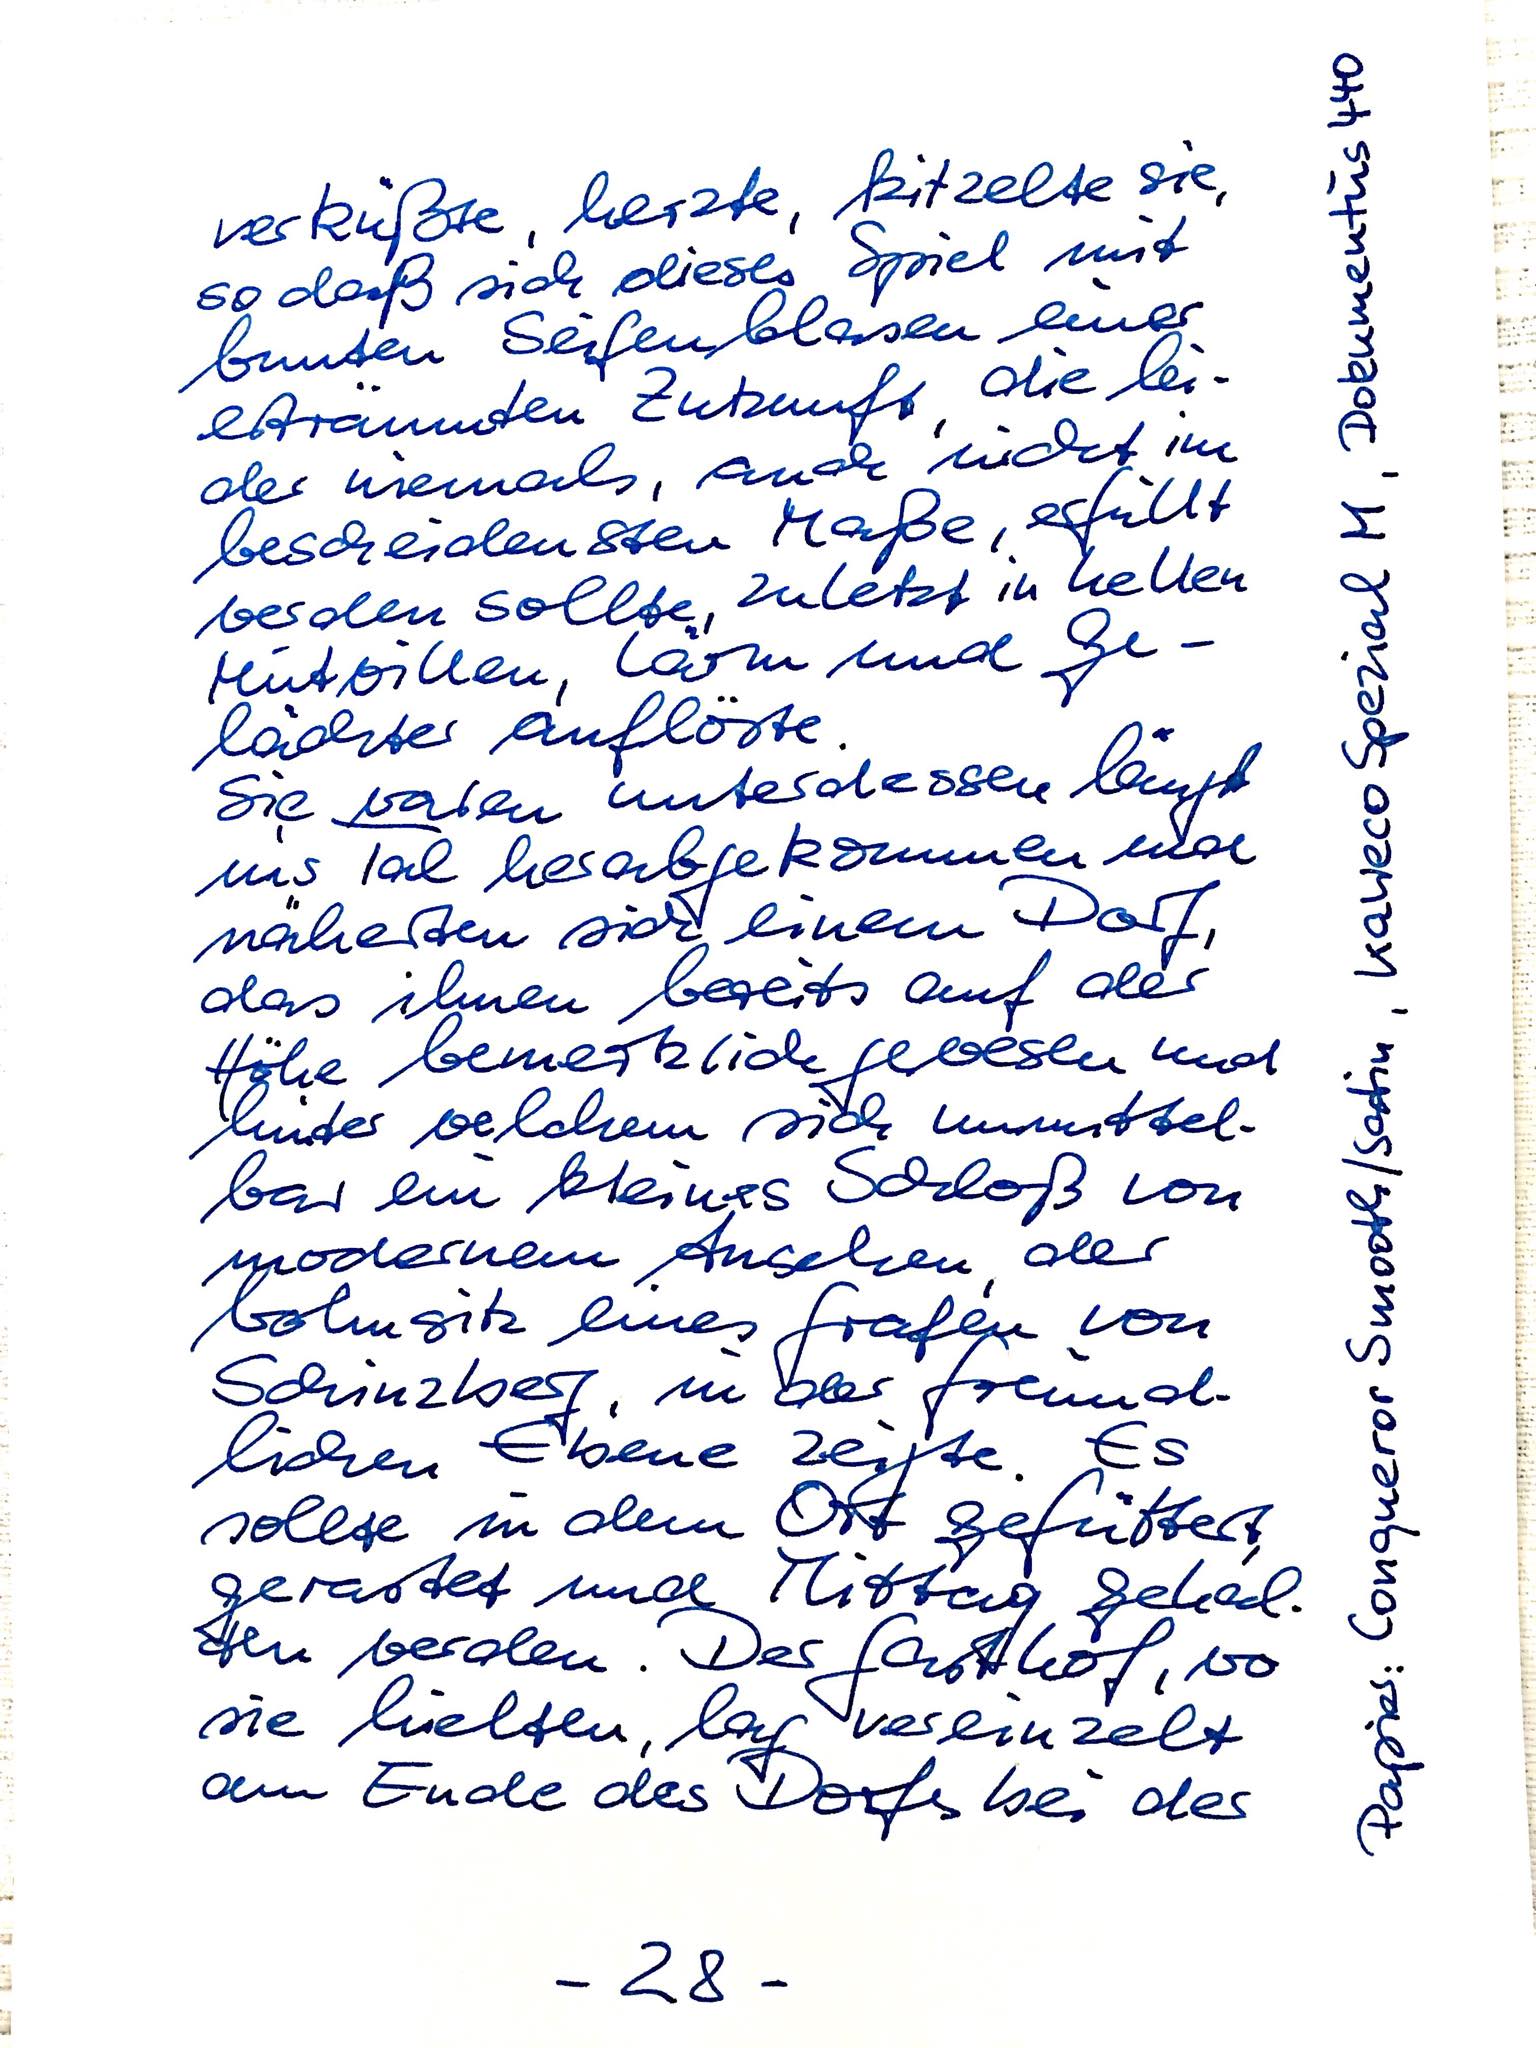 verküßte, herzte, kitzelte sie,
so daß sich dieses Spiel mit
bunten Seifenblasen einer
erträumten Zukunft, die lei-
der niemals, auch nicht im
bescheidensten Maße, erfüllt
werden sollte, zuletzt in hellen
Mutwillen, Lärm und Ge-
lächter auflöste.
Sie waren unterdessen längst
ins Tal herabgekommen und
näherten sich einem Dorf,
das ihnen bereits auf der
Höhe bemerklich gewesen und
hinter welchem sich unmittel-
bar ein kleines Schloß von
modernem Ansehen, der
Wohnsitz eines Grafen von
Schinzberg, in der freund-
lichen Ebene zeigte. Es
sollte in dem Ort gefüttert,
gerastet und Mittag gehal-
ten werden. Der Gasthof, wo
sie hielten, lag vereinzelt
am Ende des Dorfs bei der
- 28 -
Papier: Conqueror Smooth/Satin, Kaweco Spezial M, Dokumentus 440